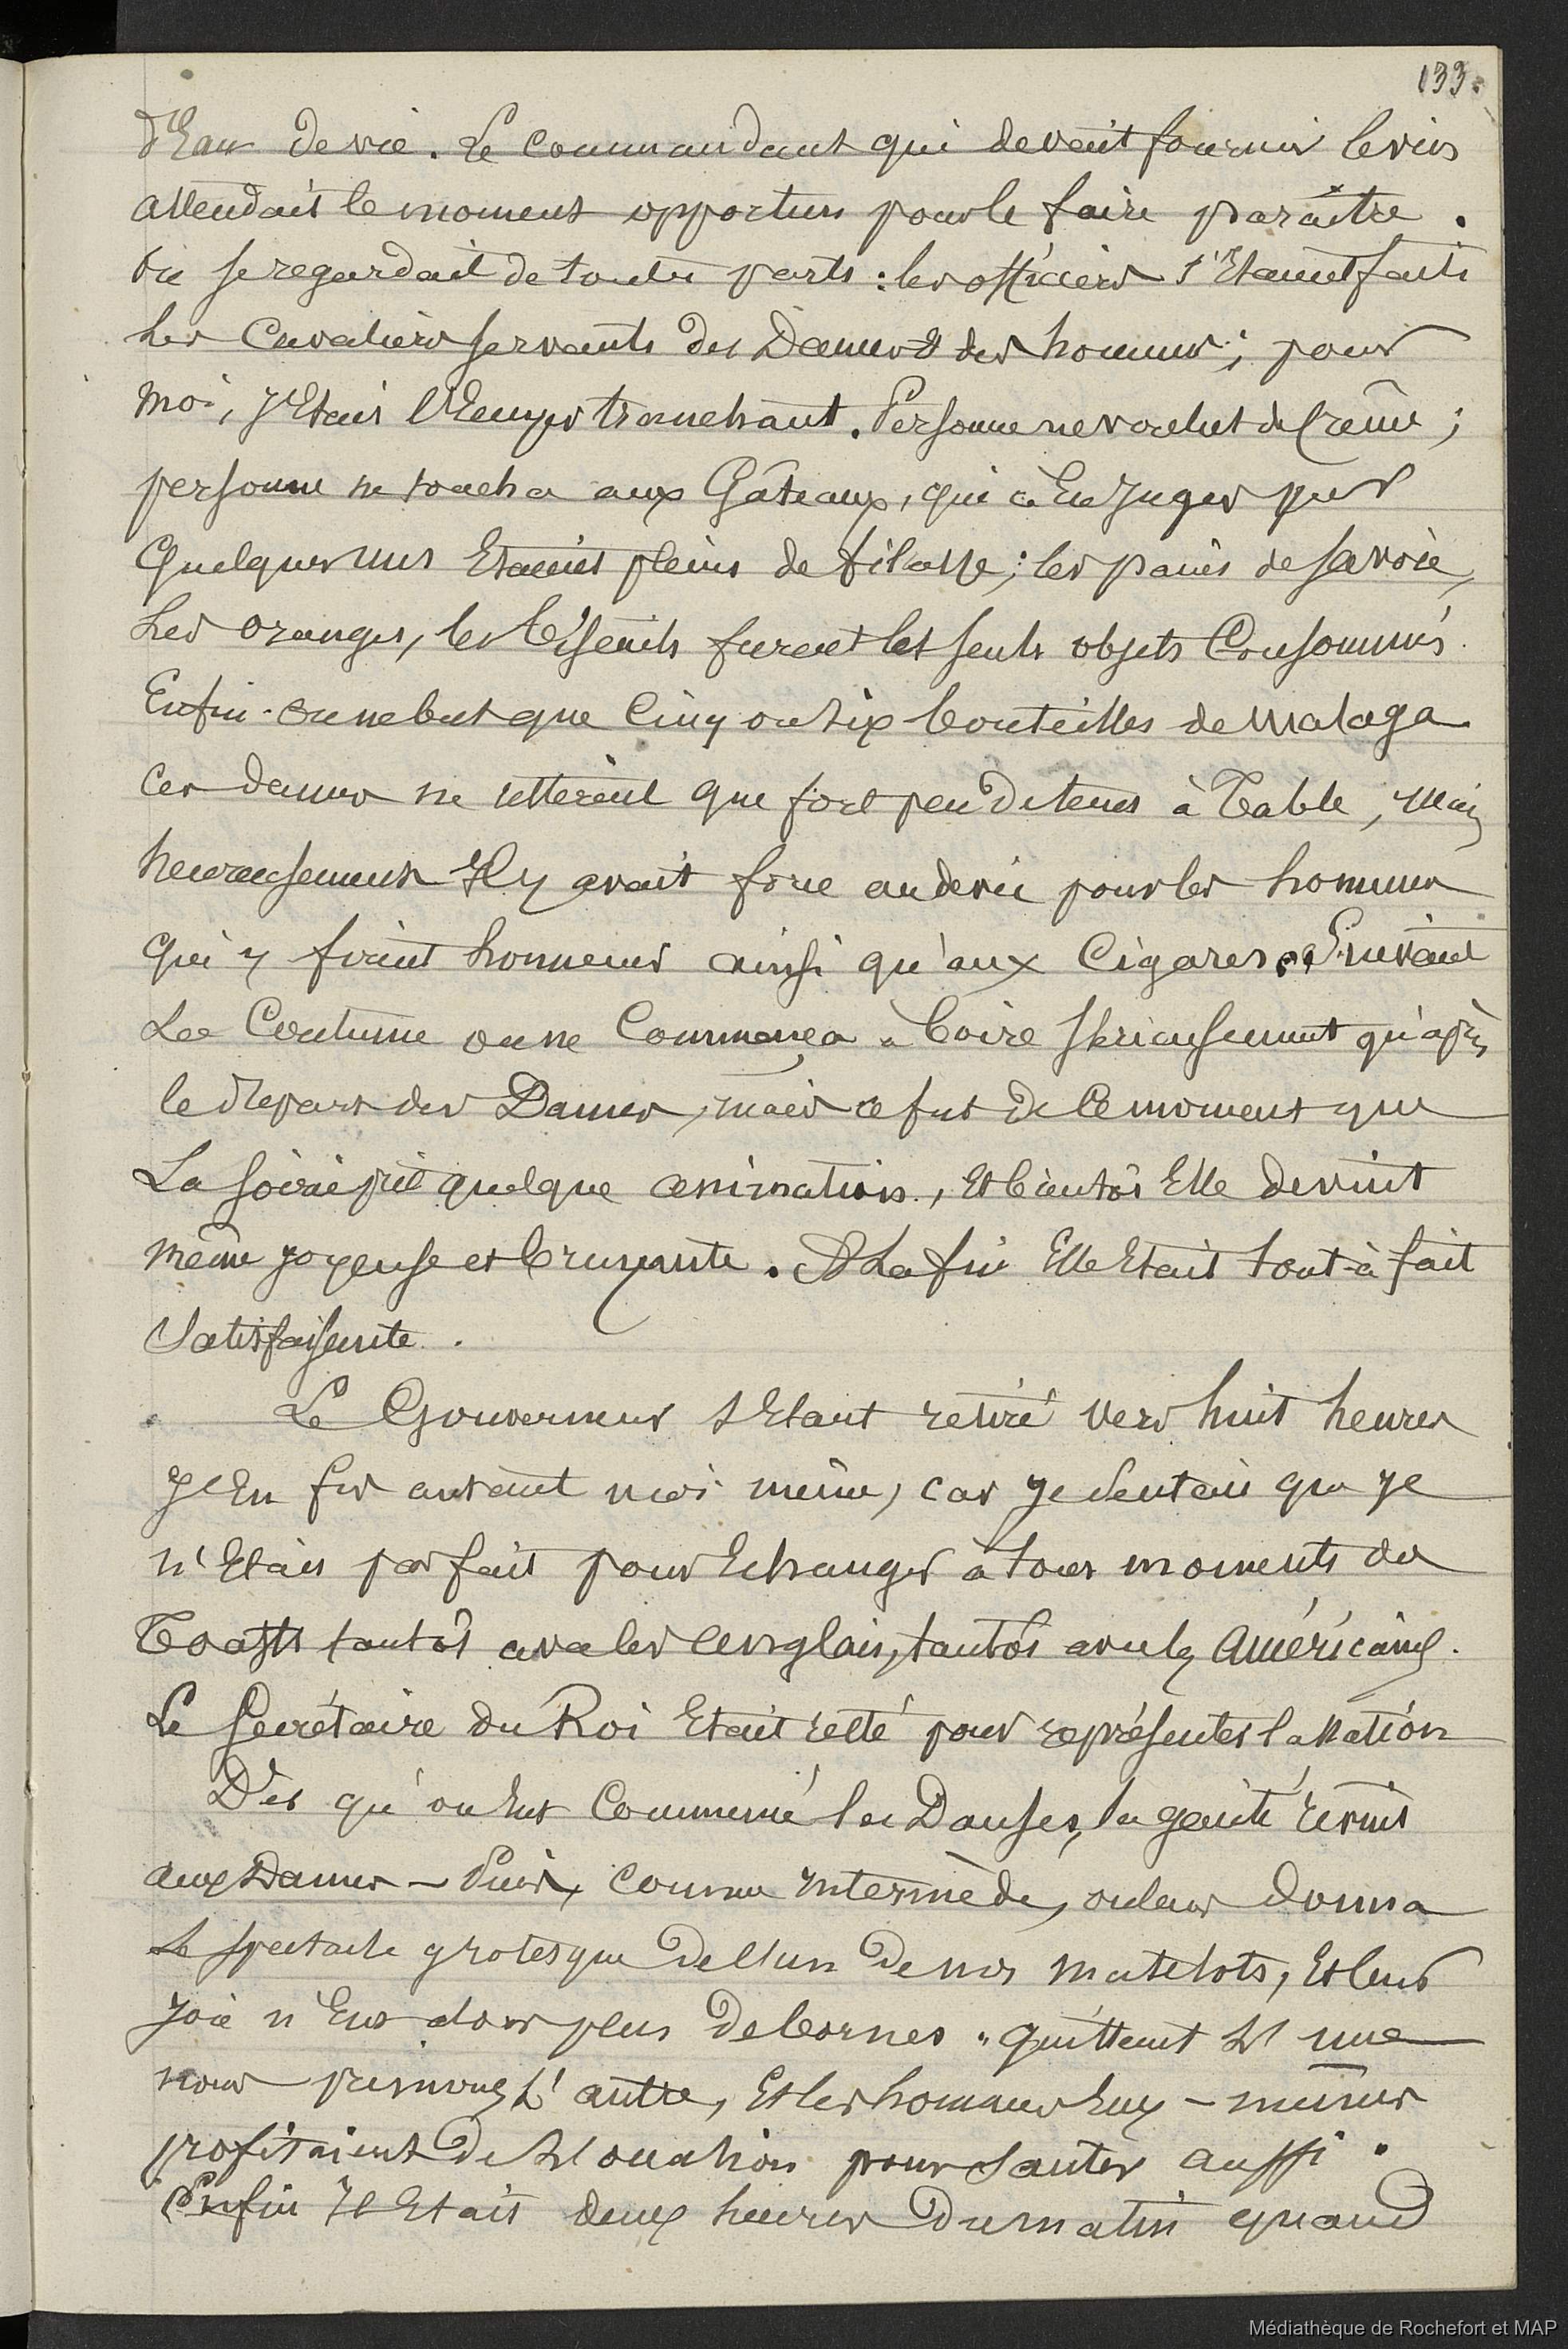 133.
d'Eau de vie. Le Commandant qui devait fournir le vin
attendait le moment opportun pour le faire paraître.
On se regardait de toutes parts : les officiers s'Etaient faits
Les Cavaliers servants des Dames & des hommes ; pour
moi, J'Etais l'Ecuyer tranchant. Personne ne voulut de Crême ;
personne ne toucha aux Gâteaux, qui à En Juger par
Quelques uns Etaient pleins de filasse ; les pains de Savoie,
Les oranges, les biscuits furent les seuls objets Consommés.
Enfin on ne but que Cinq ou Six bouteilles de Malaga
Ces dames ne restèrent que fort peu de tems à Table, Mais
heureusement Il y avait force au de vie pour les hommes
Qui y firent honneur ainsi qu'aux Cigares. Suivant
La Coutume on ne Commença à boire sérieusement qu'après
le départ des Dames, mais ce fut de Ce moment que
La soirée prit quelque animation, Et bientôt Elle devint
même joyeuse et bruyante. A La fin Elle Etait tout à fait
Satisfaisante.
Le Gouverneur s'Etant retiré vers huit heures
J'En fis autant moi même, car Je sentais que Je
n'Etais pas fait pour Echanger à tous moments des
Toasts tantôt avec les Anglais, tantôt avec les Américains.
Le Secrétaire du Roi Etait resté pour représenter la Nation
Dès qu'on Eut Commencé les Danses, la gaieté revint
aux Dames – Puis, comme Intermède, on leur donna
Le spectacle grotesque de l'un de nos matelots, Et leur
Joie n'Eut alors plus de bornes. quittant L'une
nous prenions L'autre, Et les hommes Eux-mêmes
profitaient de L'occasion pour Sauter aussi.
Enfin Il Etait deux heures du matin quand
Médiathèque de Rochefort et MAP